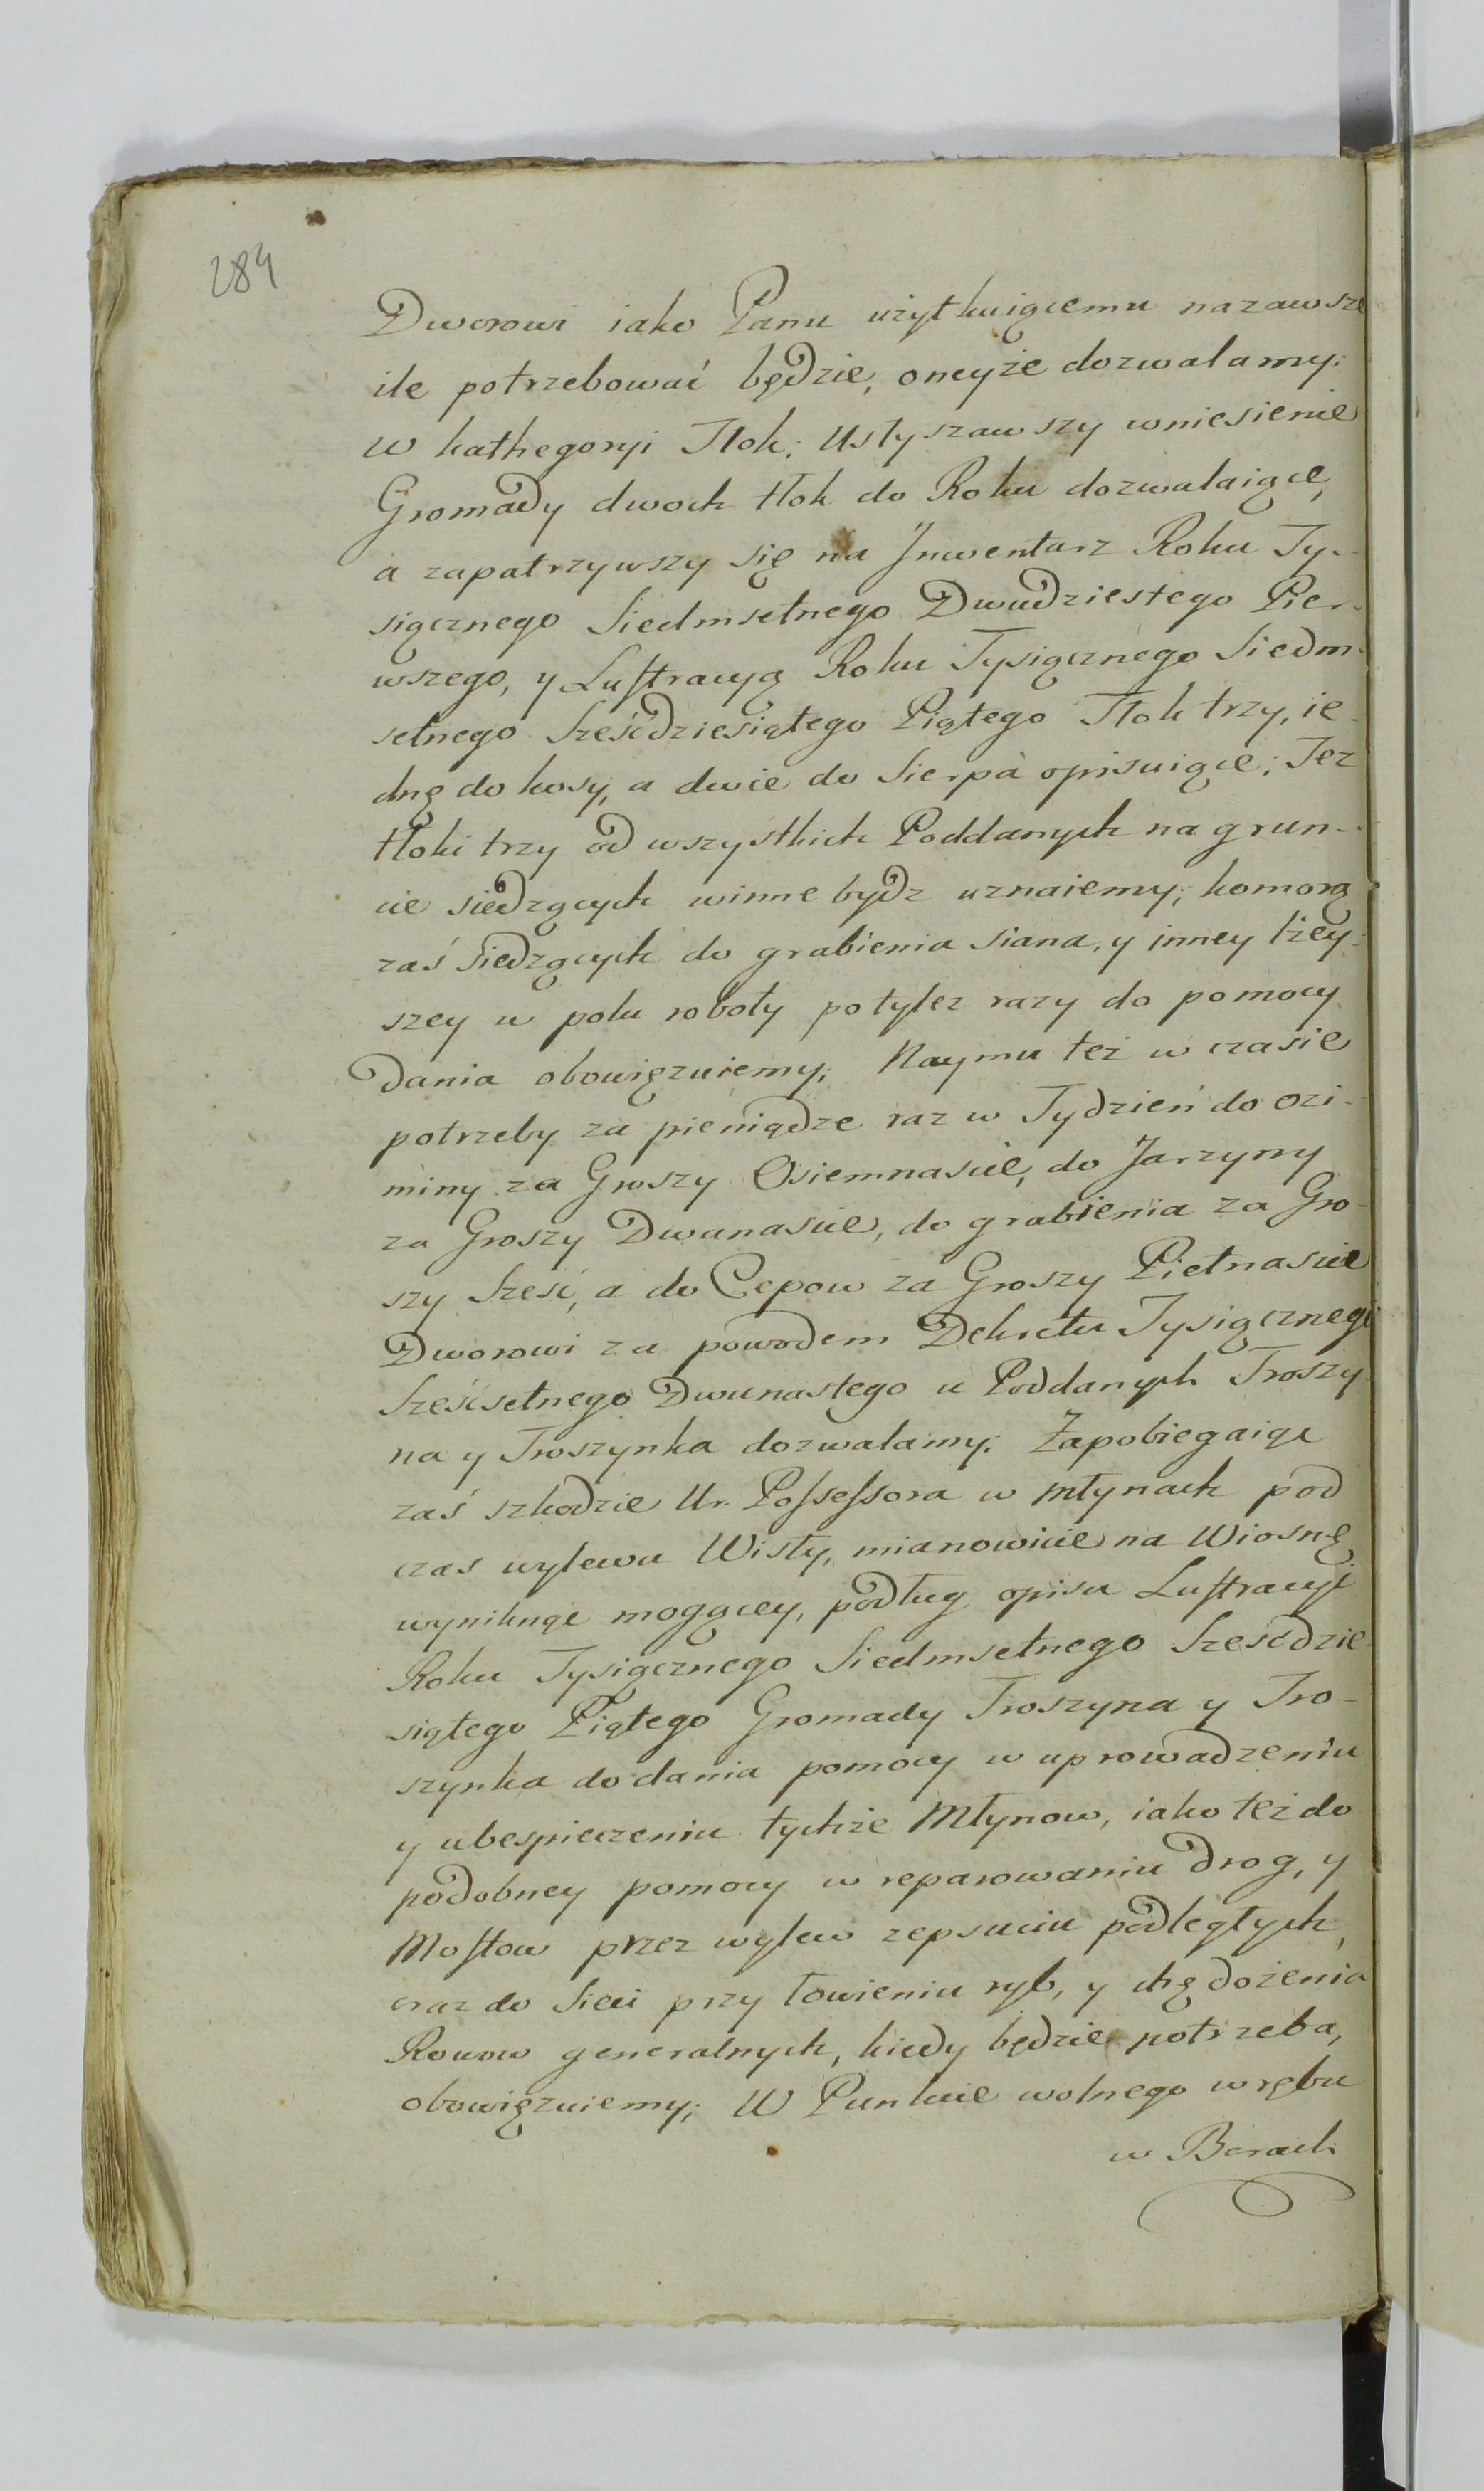 284
Dworowi iako Panu użytkuiącemu nazawsze
ile potrzebować będzie, oneyże dozwalamy:
W kathegoryi Tłok; Usłyszawszy wniesienie
Gromady dwoch tłok do Roku dozwalaiące,
a zapatrzywszy się na Inwentarz Roku Ty-
siącznego Siedmsetnego Dwudziestego Pier-
wszego, y Lustracyą Roku Tysiącznego Siedm-
setnego Sześćdziesiątego Piątego Tłok trzy, ie-
dnę do kosy, a dwie do Sierpa opisuiące; Też
tłoki trzy od wszystkich Poddanych na grun-
cie siedzących winne bydz uznaiemy; komorą
zaś siedzących do grabienia siana, y inney lżey-
szey w polu roboty po tyleż razy do pomocy
dania obowięzuiemy; Naymu też w czasie
potrzeby za pieniądze raz w Tydzień do ozi-
miny za Groszy Osiemnaście, do Jarzyny
za Groszy Dwanaście, do grabienia za Gro-
szy Sześć, a do Cepow za Groszy Piętnaście
Dworowi za powodem Dekretu Tysiącznego
Sześćsetnego Dwunastego u Poddanych Troszy-
na y Troszynka dozwalamy; Zapobiegaiąc
zaś szkodzie Ur. Possessora w młynach pod
czas wylewu Wisły, mianowicie na Wiosnę
wyniknąc mogącey, podług opisu Lustracyi
Roku Tysiącznego Siedmsetnego Sześćdzie-
siątego Piątego Gromady Troszyna y Tro-
szynka do dania pomocy w uprowadzeniu
y ubespieczeniu tychże Młynow, iako też do
podobney pomocy w reparowaniu drog, y
Mostow przez wylew zepsuciu podległych,
oraz do Sieci przy łowieniu ryb, y chędożenia
Rowow generalnych, kiedy będzie potrzeba,
obowięzuiemy; W Punkcie wolnego wrębu
w Borach